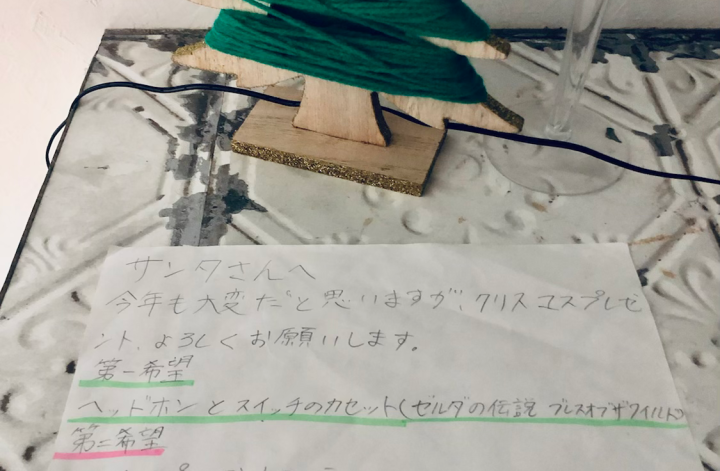 サンタさんへ
今年も大変だと思いますが、クリスマスプレゼ
ント、よろしくお願いします。
第一希望
ヘッドホンとスイッチのカセット(ゼルダの伝説 ブレスオブザワイルド)
第二希望